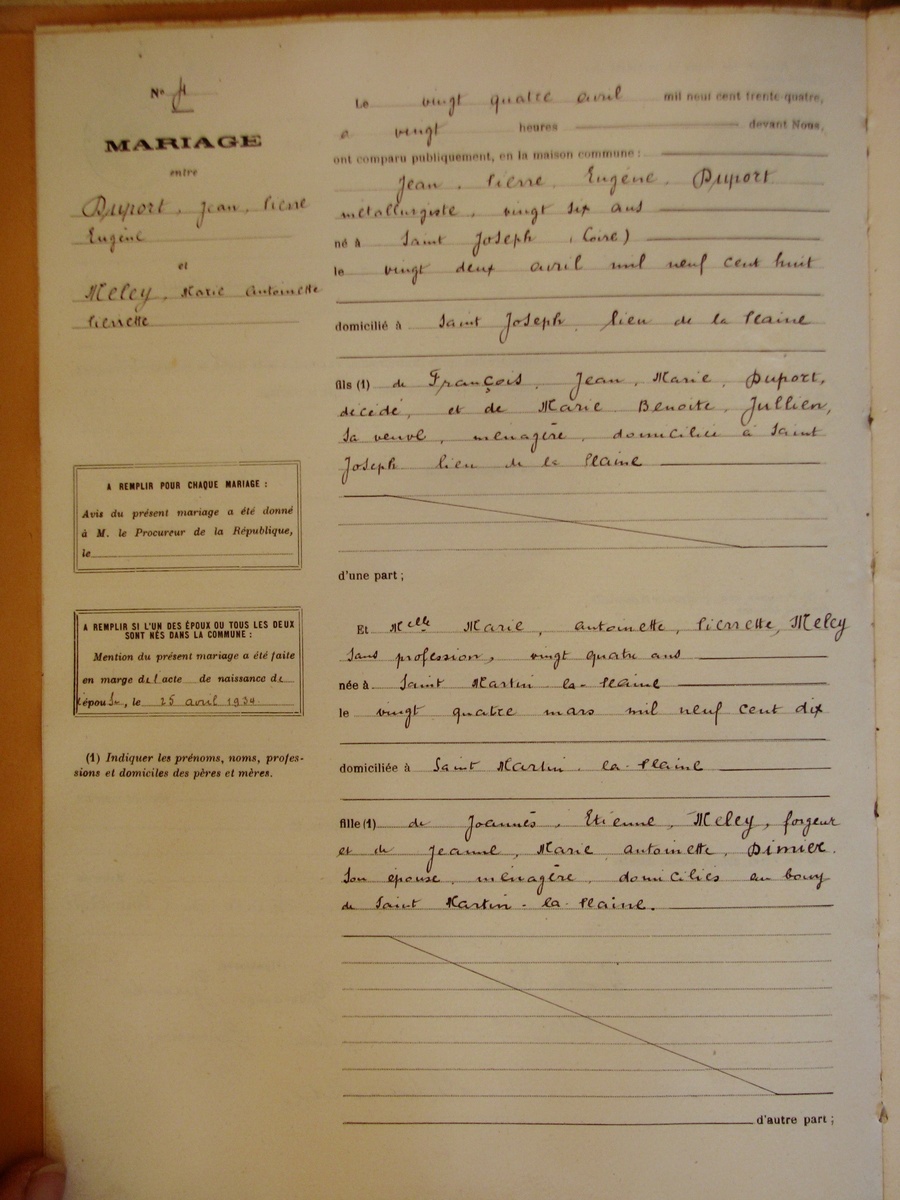 N° 4
MARIAGE
entre
Duport, Jean, Pierre
Eugène
et
Meley, Marie Antoinette
Pierrette
A REMPLIR POUR CHAQUE MARIAGE :
Avis du présent mariage a été donné
à M. le Procureur de la République,
le
A REMPLIR SI L'UN DES ÉPOUX OU TOUS LES DEUX
SONT NÉS DANS LA COMMUNE :
Mention du présent mariage a été faite
en marge de l'acte de naissance de
l'épouse, le 25 avril 1934.
(1) Indiquer les prénoms, noms, profes-
sions et domiciles des pères et mères.
Le vingt quatre avril mil neuf cent trente quatre,
à vingt heures devant Nous,
ont comparu publiquement, en la maison commune :
Jean, Pierre, Eugène, Duport
métallurgiste, vingt six ans
né à Saint Joseph (Loire)
le vingt deux avril mil neuf cent huit
domicilié à Saint Joseph, lieu de la Plaine
fils (1) de François, Jean, Marie, Duport,
décédé, et de Marie Benoite, Jullien,
sa veuve, ménagère, domiciliée à Saint
Joseph lieu de la Plaine
d'une part ;
Et Melle Marie, antoinette, Pierrette, Meley
sans profession, vingt quatre ans
née à Saint Martin-la-Plaine
le vingt quatre mars mil neuf cent dix
domiciliée à Saint Martin-la-Plaine
fille (1) de Joannès, Etienne, Meley, forgeur
et de Jeanne, Marie antoinette, Dimier.
Son épouse, ménagère, domiciliés au bourg
de Saint Martin-la-Plaine.
d'autre part ;